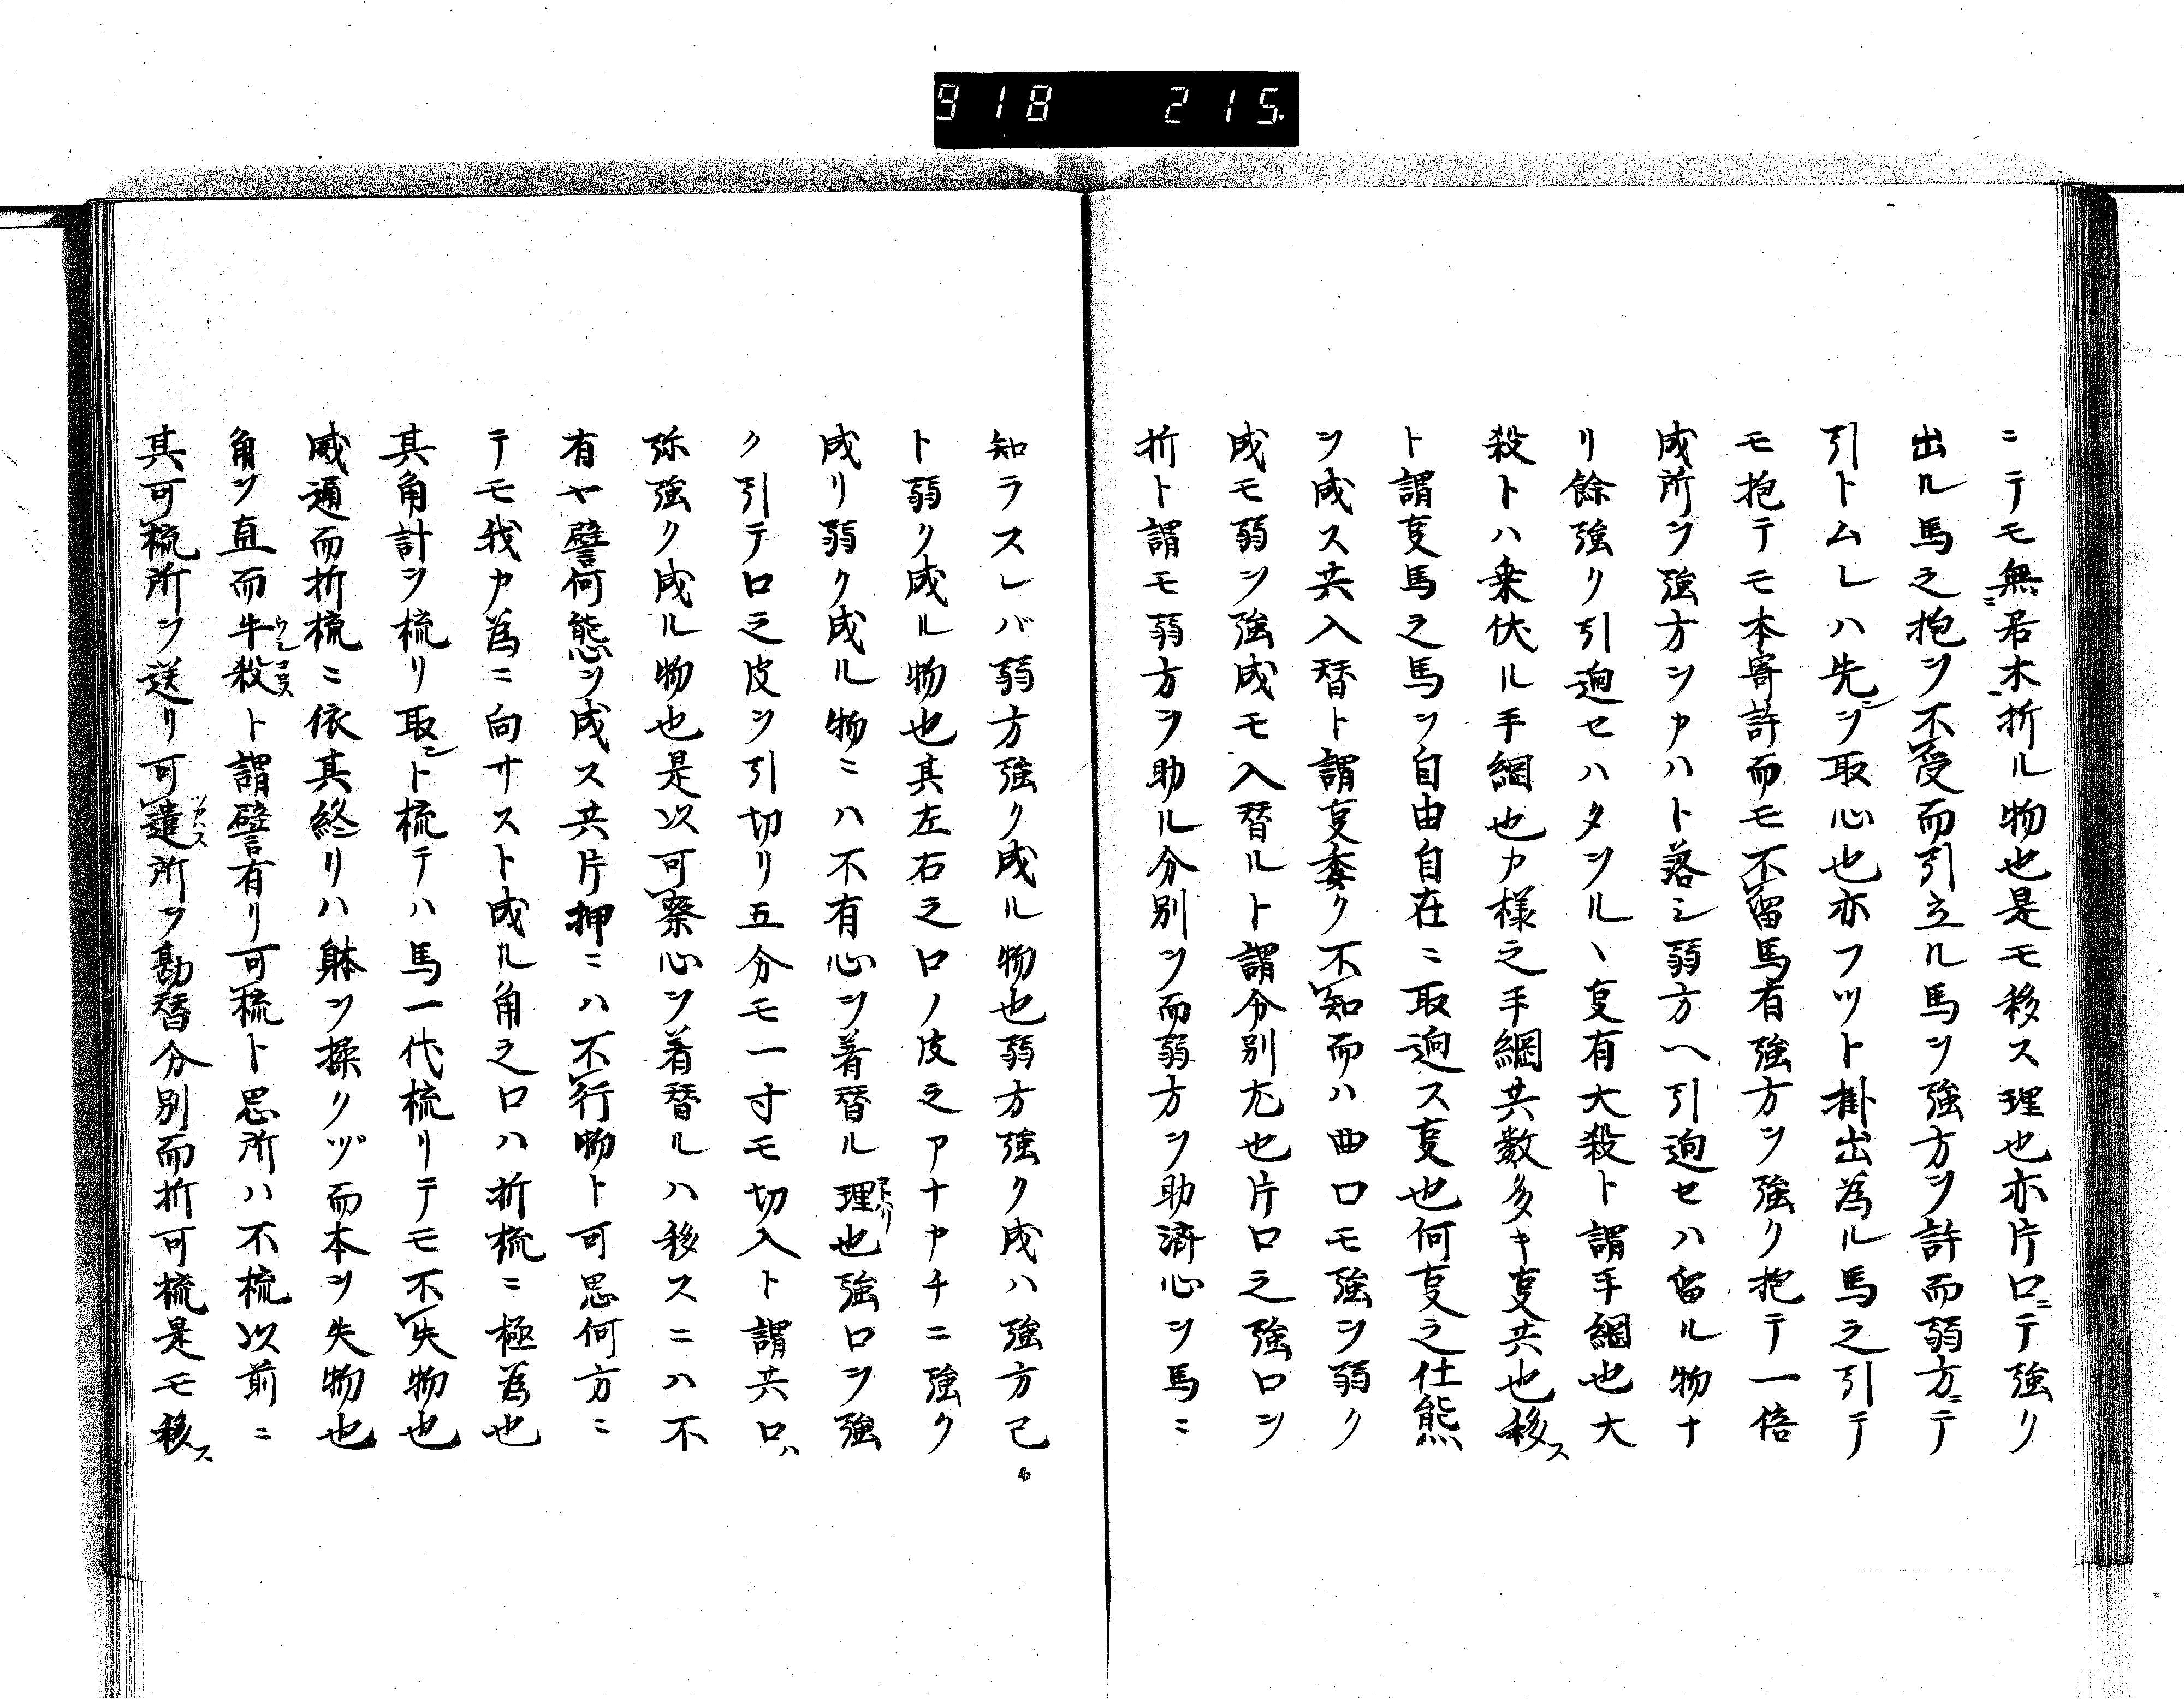 918 215.
ニテモ無ニ君木折ル物也是モ移ス理也亦片口ニテ強リ
出ル馬之抱ヲ不受而引立ル馬ヲ強方ヲ許而弱方ニテ
引トムレハ先ヲ取心也亦フツト掛出為ル馬之引テ
モ抱テモ本寄許而モ不留馬有強方ヲ強ク抱テ一倍
成所ヲ強方ヲカハト落シ弱方ヘ引廻セハ留ル物ナ
リ餘強ク引廻セハタヲルヽ㕝有大殺ト謂手綱也大
殺トハ乗伏ル手綱也カ様之手綱共数多キ㕝共也移ス
ト謂㕝馬之馬ヲ自由自在ニ取廻ス㕝也何㕝之仕態
ヲ成ス共入替ト謂㕝委ク不知而ハ曲口モ強ヲ弱ク
成モ弱ヲ強成モ入替ルト謂分別尤也片口之強口ヲ
折ト謂モ弱方ヲ助ル分別ヲ而弱方ヲ助済心ヲ馬ニ
知ラスレバ弱方強ク成ル物也弱方強ク成ハ強方己
ト弱ク成ル物也其左右之口ノ皮之アナカチニ強ク
成リ弱ク成ル物ニハ不有心ヲ着替ル理コトハリ也強口ヲ強
ク引テ口之皮ヲ引切リ五分モ一寸モ切入ト謂共口ハ
弥強ク成ル物也是以可察心ヲ着替ルハ移スニハ不
有ヤ譬何態ヲ成ス共片押ニハ不行物ト可思何方ニ
テモ我カ為ニ向サスト成ル角之口ハ折梳ニ極為也
其角計ヲ梳リ取ント梳テハ馬一代梳リテモ不失物也
威通而折梳ニ依其終リハ躰ヲ揉クヅ而本ヲ失物也
角ヲ直而牛殺ウシコロストト謂譬有リ可梳ト思所ハ不梳以前ニ
其可梳所ヲ送リ可遣ツカハス所ヲ勘替分別而折可梳是モ移ス